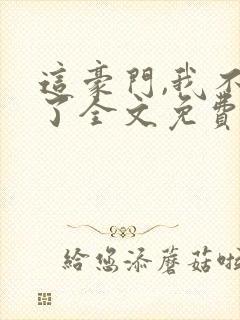 這豪門,我不
了全文免費
給您添蘑菇啦